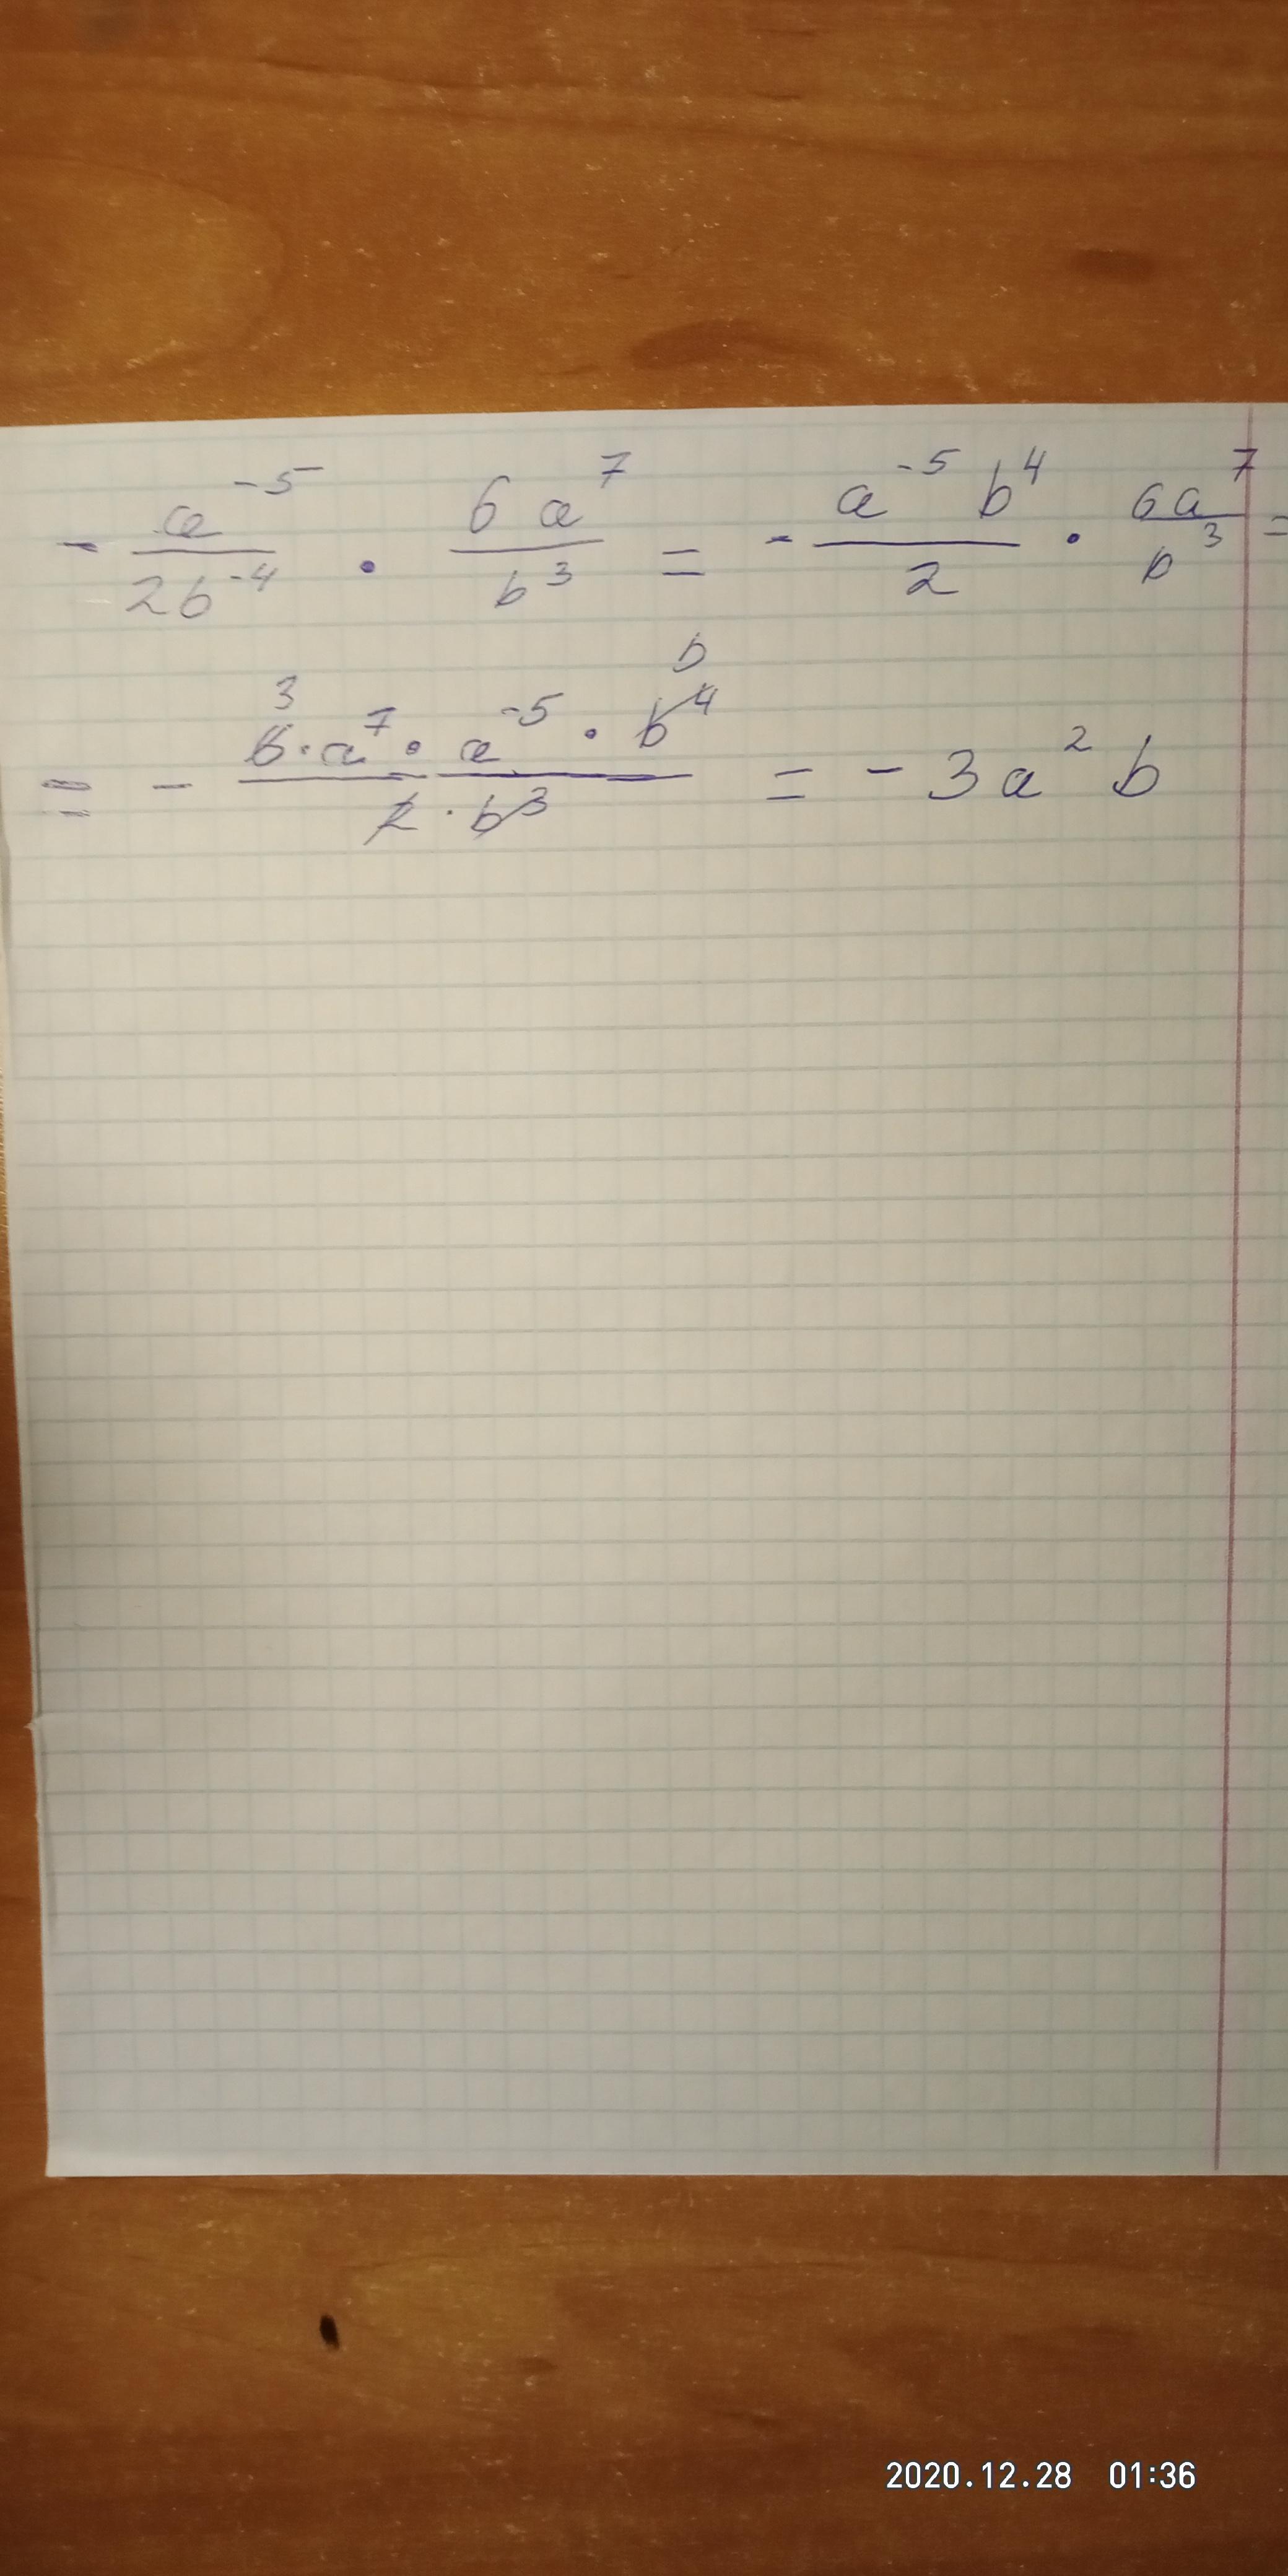 - a^-5 / 2b^-4 · 6a^7 / b^3 = - a^-5 b^4 / 2 · 6a^7 / b^3 =
= - 6·a^7 · a^-5 · b^4 / 2 · b^3 = - 3a^2 b
3 b
2020.12.28 01:36